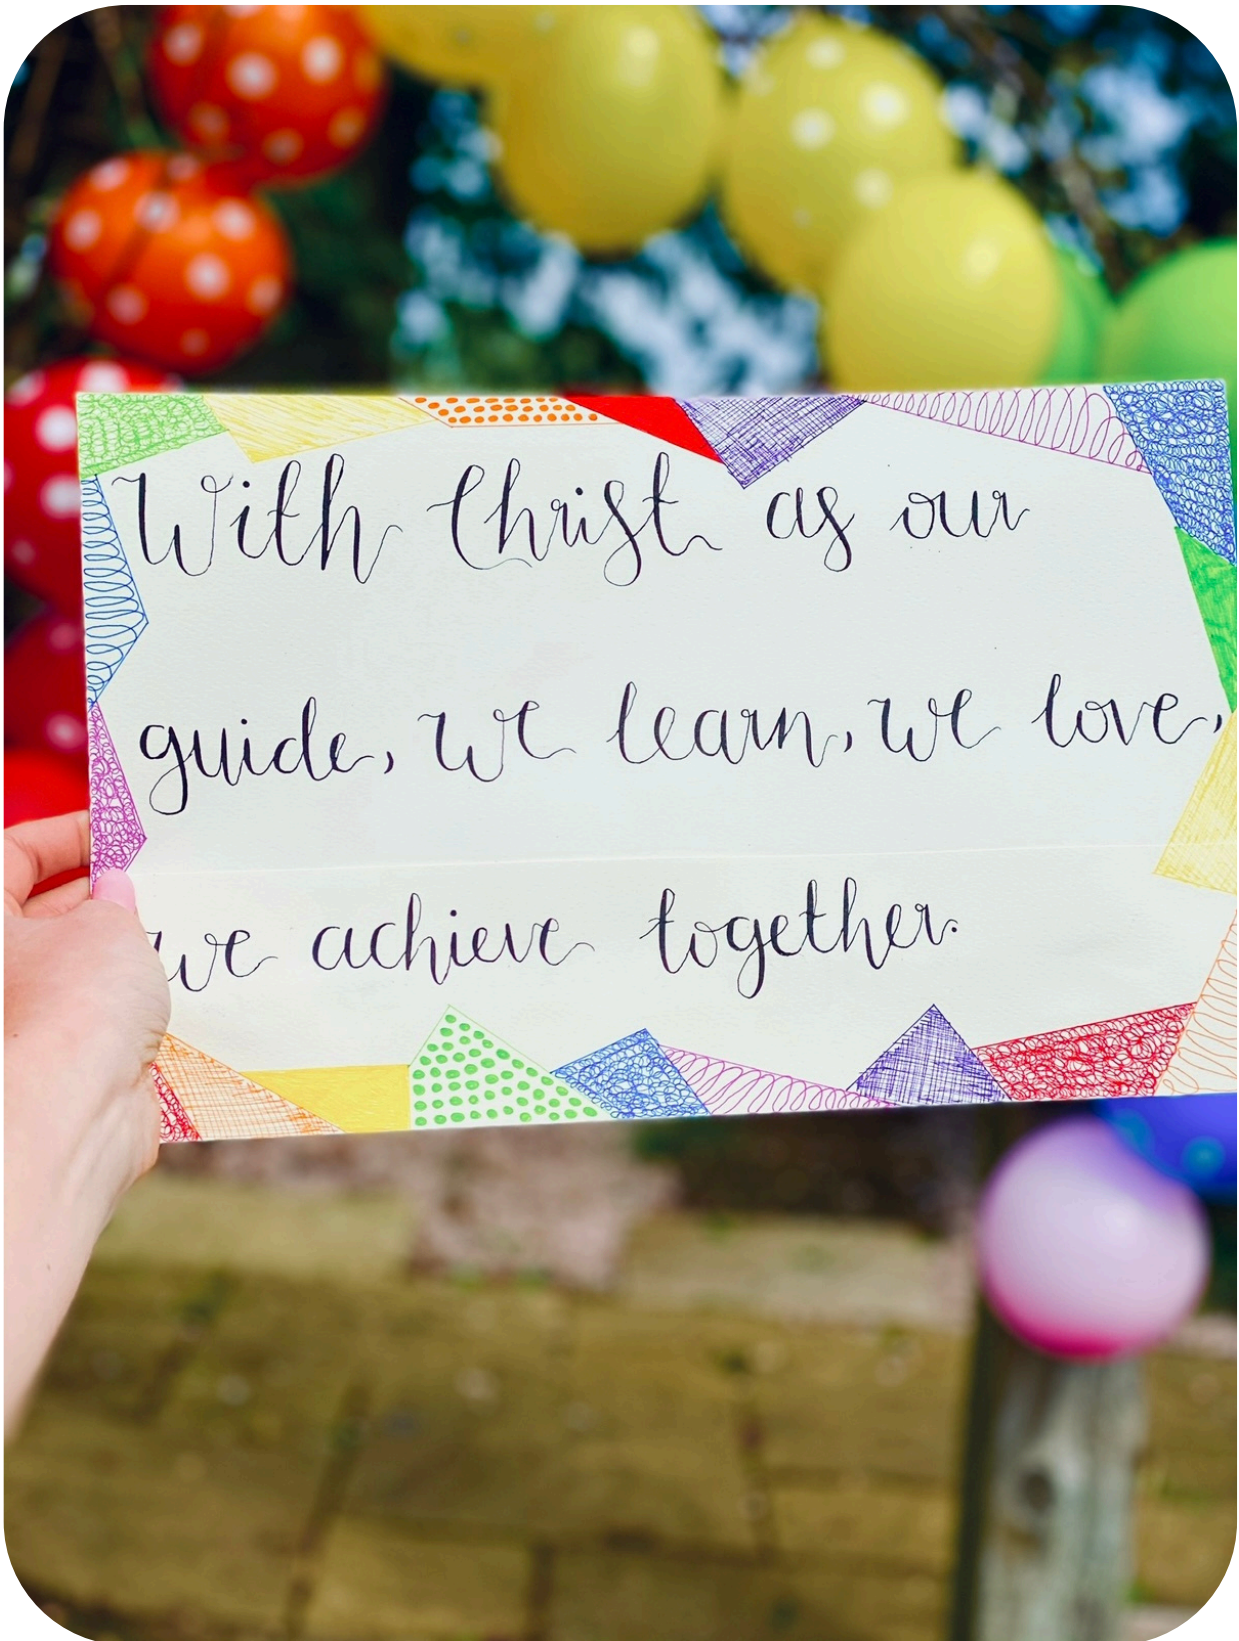 With Christ as our
guide, we learn, we love,
we achieve together.